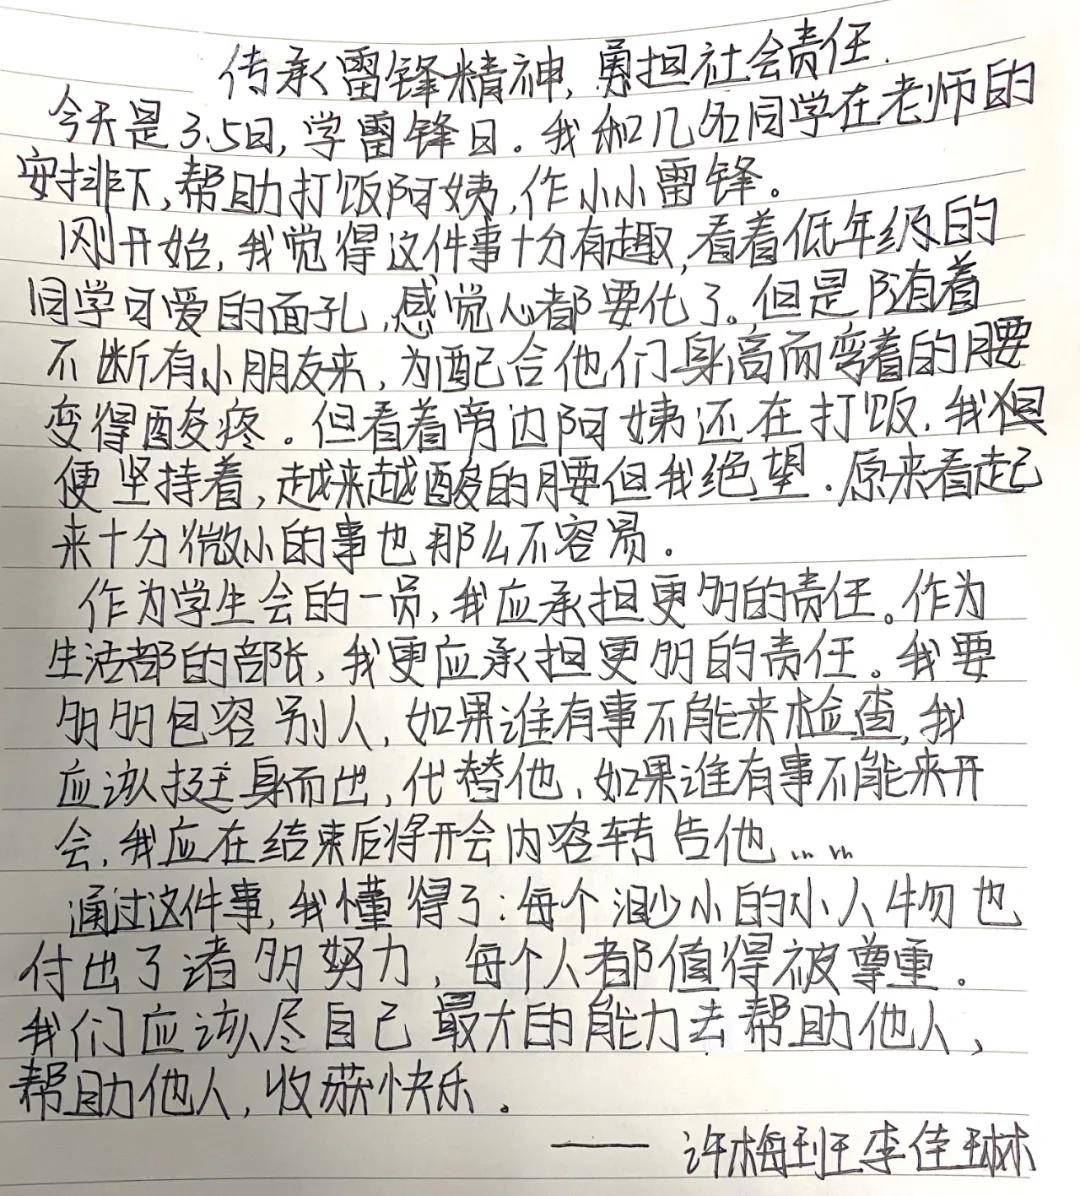 传承雷锋精神,勇担社会责任.
今天是3.5日,学雷锋日。我和几名同学在老师的
安排下,帮助打饭阿姨,作小小雷锋。
刚开始,我觉得这件事十分有趣,看着低年级的
同学可爱的面孔,感觉心都要化了。但是随着
不断有小朋友来,为配合他们身高而弯着的腰
变得酸疼。但看着旁边阿姨还在打饭,我
便坚持着,越来越酸的腰但我绝望.原来看起
来十分微小的事也那么不容易。
作为学生会的一员,我应承担更多的责任。作为
生活部的部长,我更应承担更多的责任。我要
多多包容别人,如果谁有事不能来检查,我
应该挺身而出,代替他,如果谁有事不能来开
会,我应在结束后将开会内容转告他……
通过这件事,我懂得了:每个渺小的小人物也
付出了诸多努力,每个人都值得被尊重。
我们应该尽自己最大的能力去帮助他人,
帮助他人,收获快乐。
——许梅班李佳琳